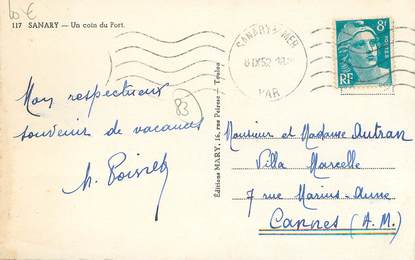 10 €
117 SANARY — Un coin du Port.
SANARY S MER
IX 52
VAR
8F
RF
Mon respectueux
souvenir de vacances
83
Editions MARY, 16, rue Peiresc - Toulon
Monsieur et Madame Autran
Villa Marcelle
7 rue Marius-Aune
Cannes (A.M.)